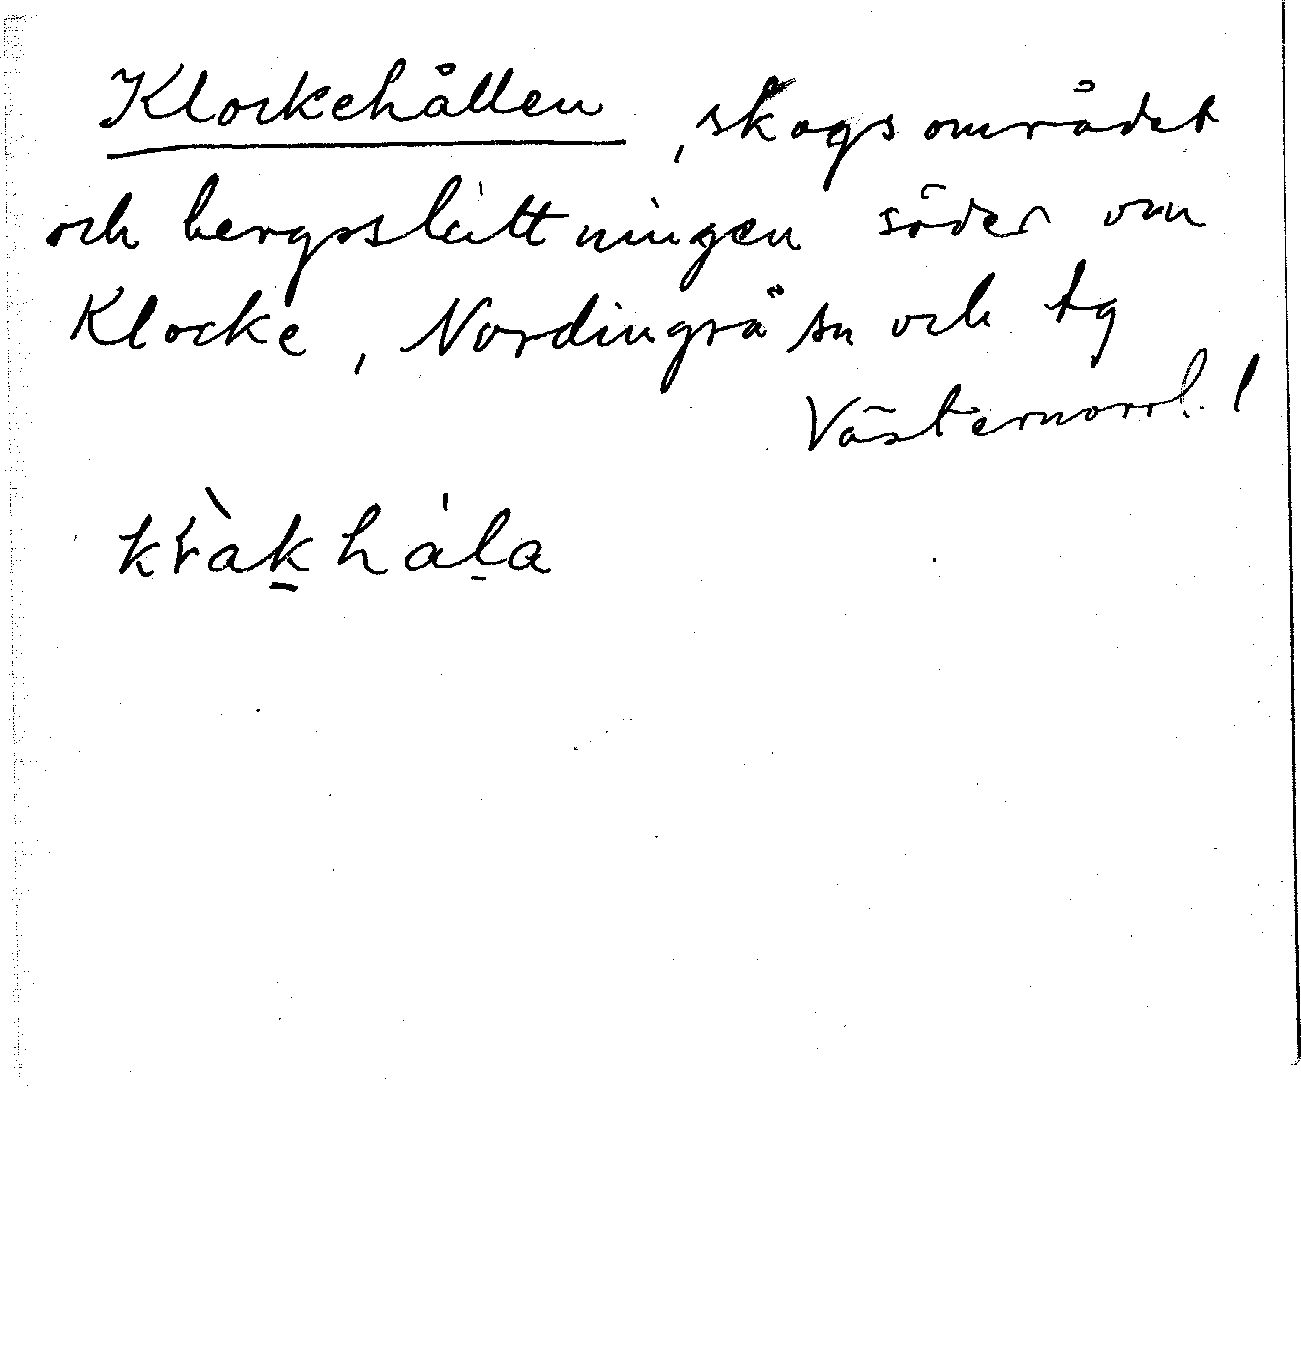 Klockehållen, skogsområdet
och bergssluttningen söder om
Klocke, Nordingrå sn och tg
Västernorrl. l
kràk hála